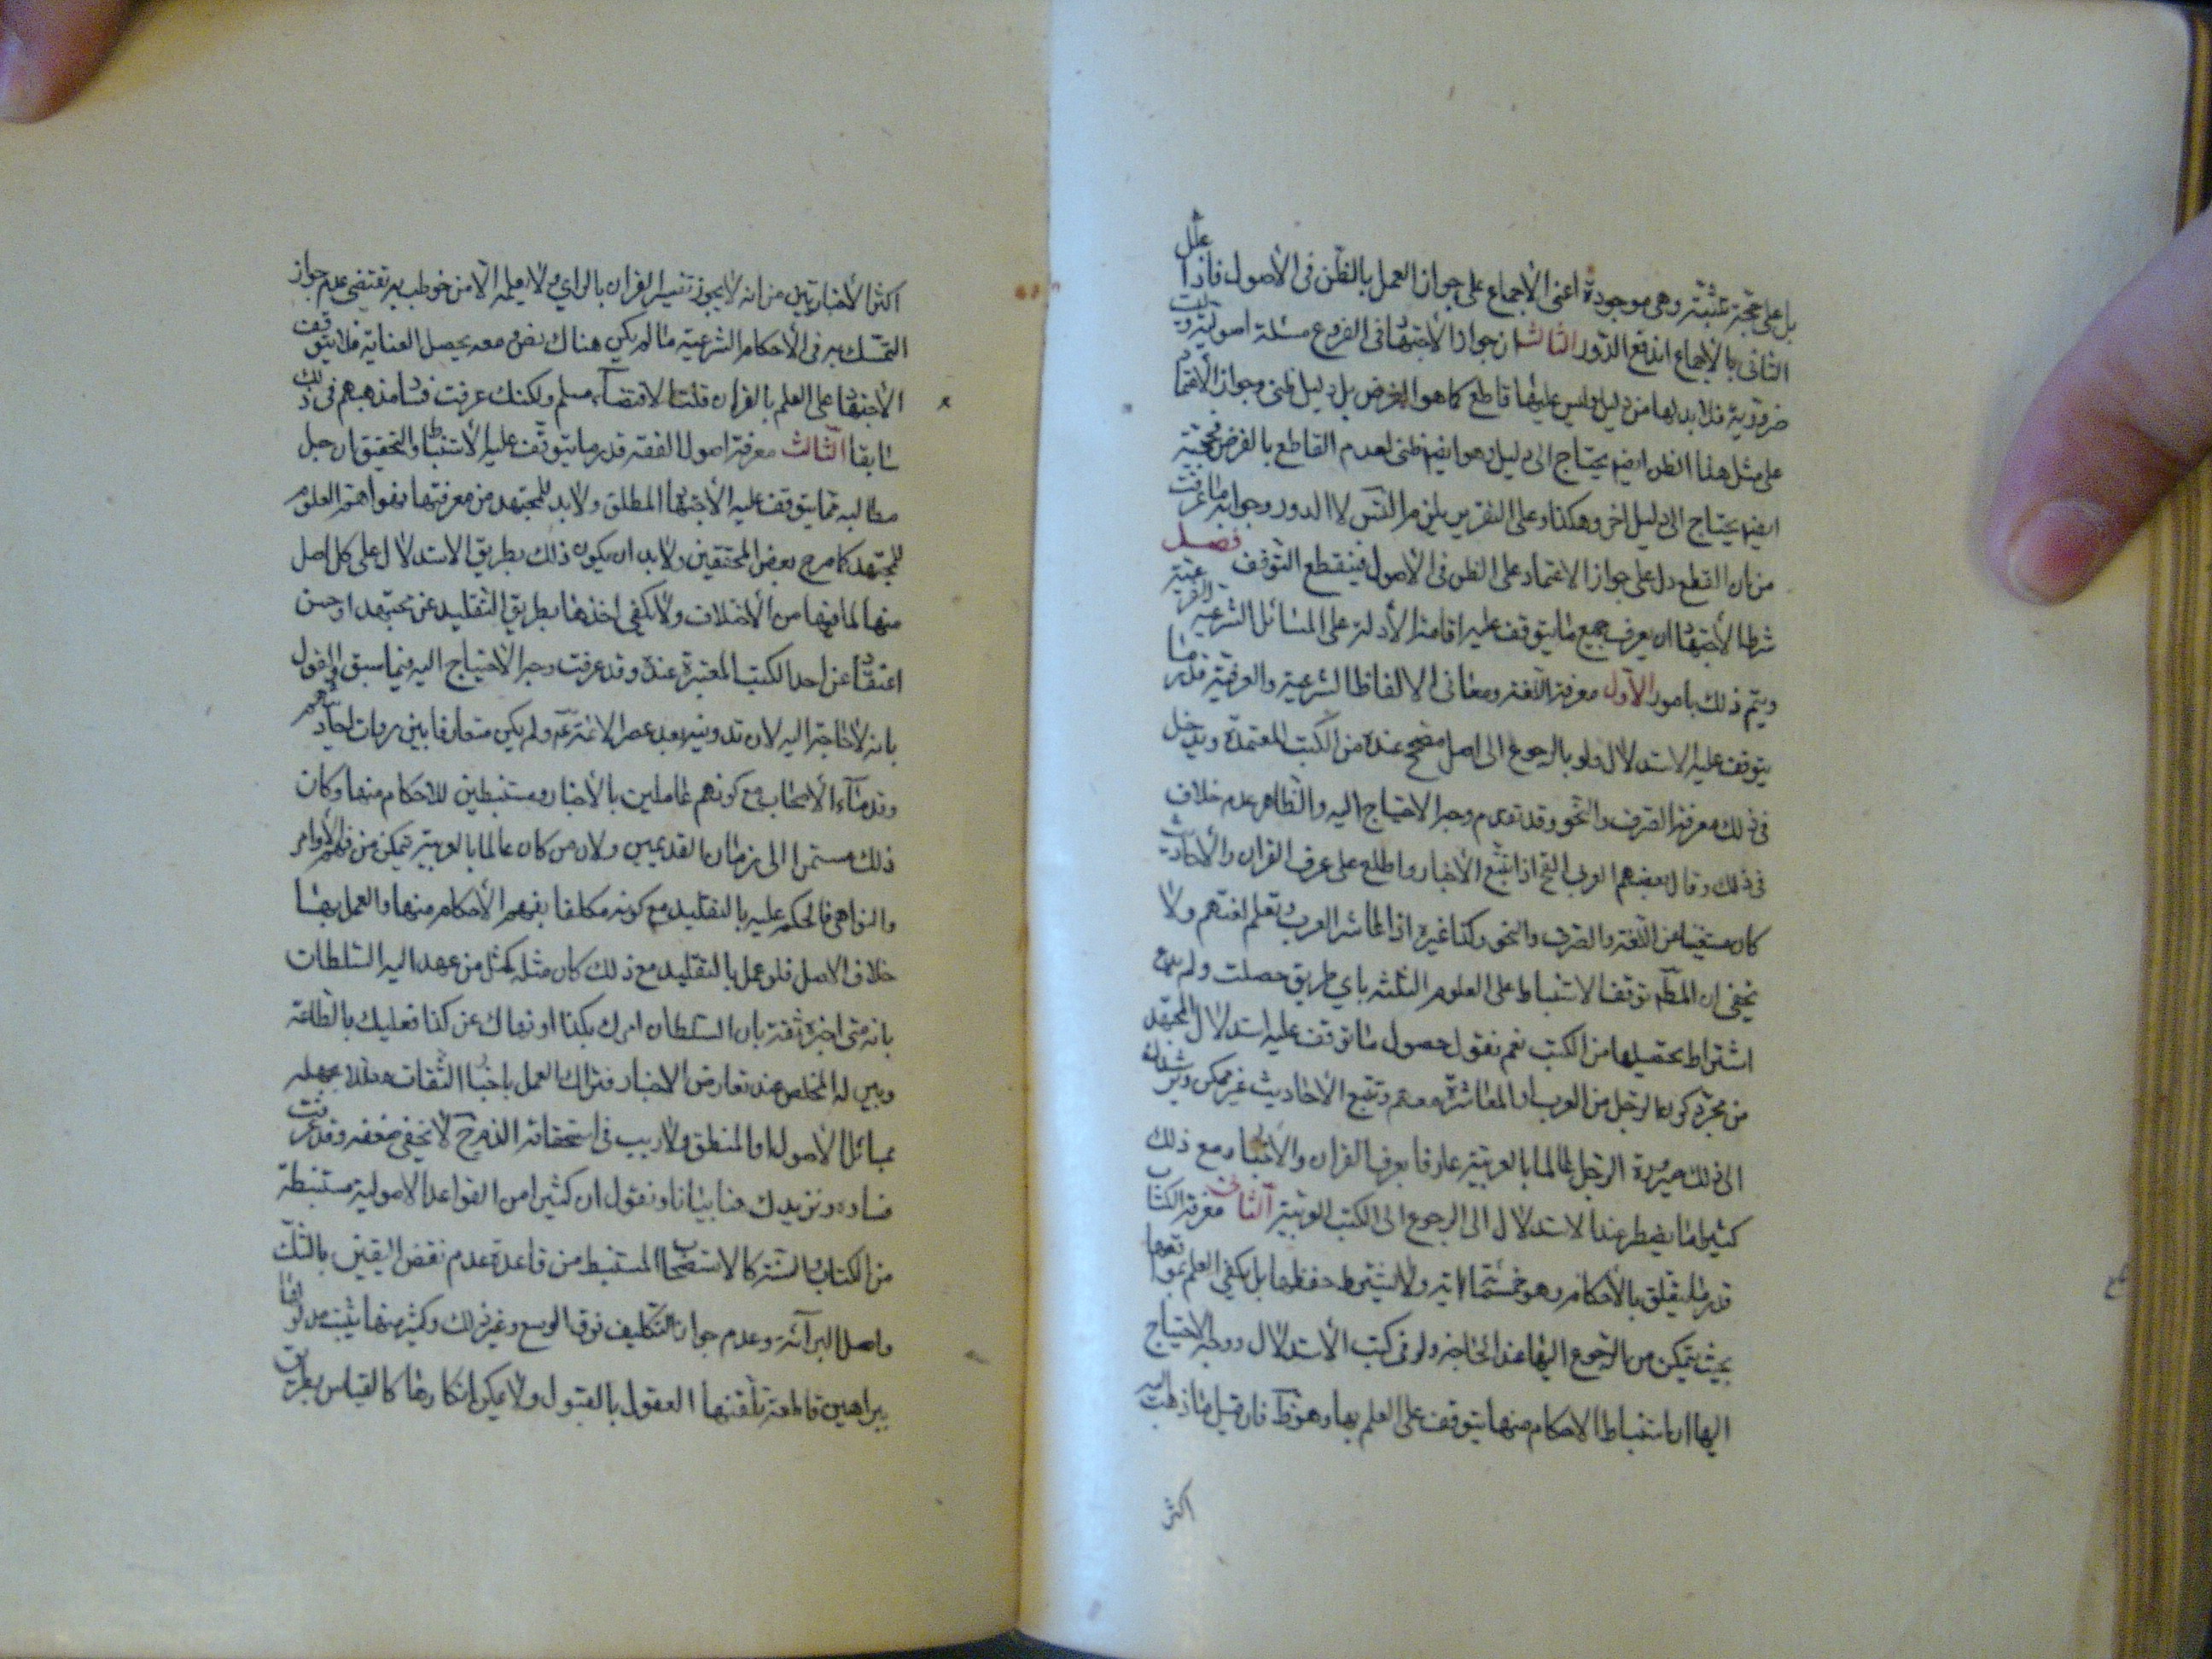 بل على حجّة مثبتة وهى موجودة اعنى الأجماع على جواز العمل بالظن فى الأصول فاذا علّل
الثانى بالأجماع اندفع الدّور الثالث ان جواز الأجتهاد فى الفروع مسئلة اصولية وليست
ضرورية فلا بد لها من دليل وليس عليها قاطع كما هو الفرض بل دليل ظنى وجواز الأعتماد
على مثل هذا الظن ايضا يحتاج الى دليل وهو ايضا ظنى لعدم القاطع بالفرض فحجّيته
ايضا يحتاج الى دليل اخر وهكذا وعلى التقرير يلزم التس لا الدور وجوابه ما عرفت
من ان القطع دل على جواز الاعتماد على الظن فى الأصول فينقطع التوقف فصل
شرط الأجتهاد ان يعرف جميع ما يتوقف عليه اقامة الأدلة على المسائل الشرعية الفرعية
ويتم ذلك بامور الأول معرفة اللّغة ومعانى الالفاظ الشرعية والعرفية قدر ما
يتوقف عليه الاستدلال ولو بالرجوع الى اصل مصحّح عنده من الكتب المعتمدة ويدخل
فى ذلك معرفة الصّرف والنّحو وقد تقدم وجه الاحتياج اليه والظاهر عدم خلاف
فى ذلك وقال بعضهم العربى القح اذا تتبّع الأخبار واطلع على عرف القران والأحاديث
كان مستغنيا عن اللّغة والصّرف والنحو وكذا غيره اذا عاشر العرب وتعلم لغتهم ولا
يخفى ان المطم توقف الاستنباط على العلوم الثلثة باي طريق حصلت ولم يدع
اشتراط تحصيلها من الكتب نعم نقول حصول ما توقف عليه استدلال المجتهد
من مجرّد كون الرجل من العرب او المعاشرة معهم وتتبع الأحاديث غير ممكن ويرشدك
الى ذلك ضرورة الرجل عالما بالعربية عارفا بعرف القران والأخبار ومع ذلك
كثيرا ما يضطر عند الاستدلال الى الرجوع الى الكتب العربية الثانى معرفة الكتاب
قدر ما يتعلّق بالأحكام وهو خمسمائة اية ولا يشترط حفظها بل يكفي العلم بمواقعها
بحيث يتمكن من الرّجوع اليها عند الحاجة ولو فى كتب الأستدلال ووجه الاحتياج
اليها ان استنباط الاحكام منها يتوقف على العلم بها وهو ظ فان قيل ما ذهبت اليه
اكثر
اكثر الأخباريين من انه لا يجوز تفسير القران بالراي ولا يعلمه الّا من خوطب به تقتضى عدم جواز
التمسّك به فى الأحكام الشرعية ما لم يكن هناك نص ومعه يحصل الغناية فلا يتوقف
الأجتهاد على العلم بالقران قلنا الاقتضاء مسلم ولكنك عرفت فساد مذهبهم فى ذلك
سابقا الثّالث معرفة اصول الفقه قدر ما يتوقف عليه الأستنباط والتحقيق ان جل
مطالبه مما يتوقف عليه الأجتهاد المطلق ولا بد للمجتهد من معرفتها فهو اهم العلوم
للمجتهد كما صرح بعض المحققين ولا بد ان يكون ذلك بطريق الاستدلال على كل اصل
منها لما فيها من الأختلاف ولا يكفى اخذها بطريق التقليد عن مجتهد او حسن
اعتقاد عن احد الكتب المعتبرة عنده وقد عرفت وجه الأحتياج اليه فيما سبق والقول
بانه لا حاجة اليه لان تدوينه بعد عصر الائمة عم ولم يكن متعارفا بين روات احاديثهم
وقدماء الأصحاب مع كونهم عاملين بالأخبار ومستنبطين للأحكام منها وكان
ذلك مستمرا الى زمان القديمين ولان من كان عالما بالعربية تمكن من فهم الأوامر
والنواهى فالحكم عليه بالتقليد مع كونه مكلفا بفهم الأحكام منها والعمل بها
خلاف الاصل فلو عمل بالتقليد مع ذلك كان مثله كمثل من عهد اليه السّلطان
بانه متى اخبره ثقة بان السّلطان امرك بكذا او نهاك عن كذا فعليك بالطّاعة
وبين له المخلص عند تعارض الاخبار فترك العمل باخبار الثّقات معللا بجهله
بمسائل الأصول او المنطق ولا ريب فى استحقاقه الذم ح لا يخفى ضعفه وقد عرفت
فساده ونزيدك هنا بيانا ونقول ان كثيرا من القواعد الاصولية مستنبطة
من الكتاب والسّنة كالاستصحاب المستنبط من قاعدة عدم نقض اليقين بالشّك
واصل البرآئة وعدم جواز التّكليف فوق الوسع وغير ذلك وكثير منها يثبت مدلولها
ببراهين قاطعة تلقتها العقول بالقبول ولا يمكن انكارها كالقياس بطريق